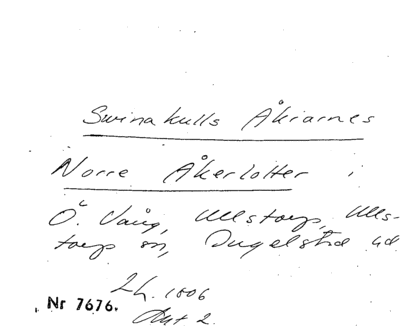 Swinakulls Åkrarnes
Norre Åkerlotter i
Ö. Vång, Ullstorp, Ulls-
torp sn, Ingelstad hd
LH. 1806
Akt 2.
Nr 7676.